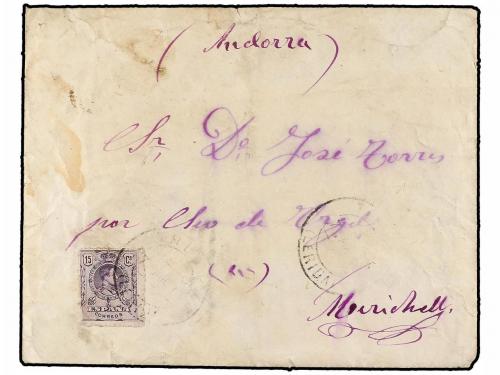 (Andorra)
Sr. Dn José Torres
por Seo de Urgel
Merichell.
15 Cs
ESPAÑA
CORREOS
LERIDA